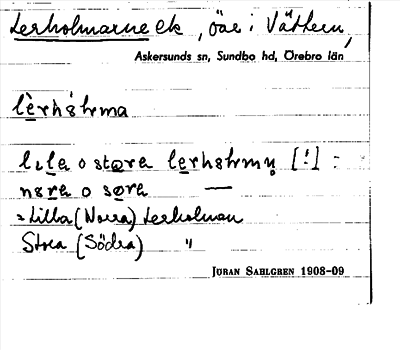 Lerholmarne ek, öar i Vättern,
Askersunds sn, Sundbo hd, Örebro län
lèrhȯlma
lıla o støra [!] =
nøra o søra —
= Lilla (Norra) Lerholmen
Stora (Södra) "
JÖRAN SAHLGREN 1908-09